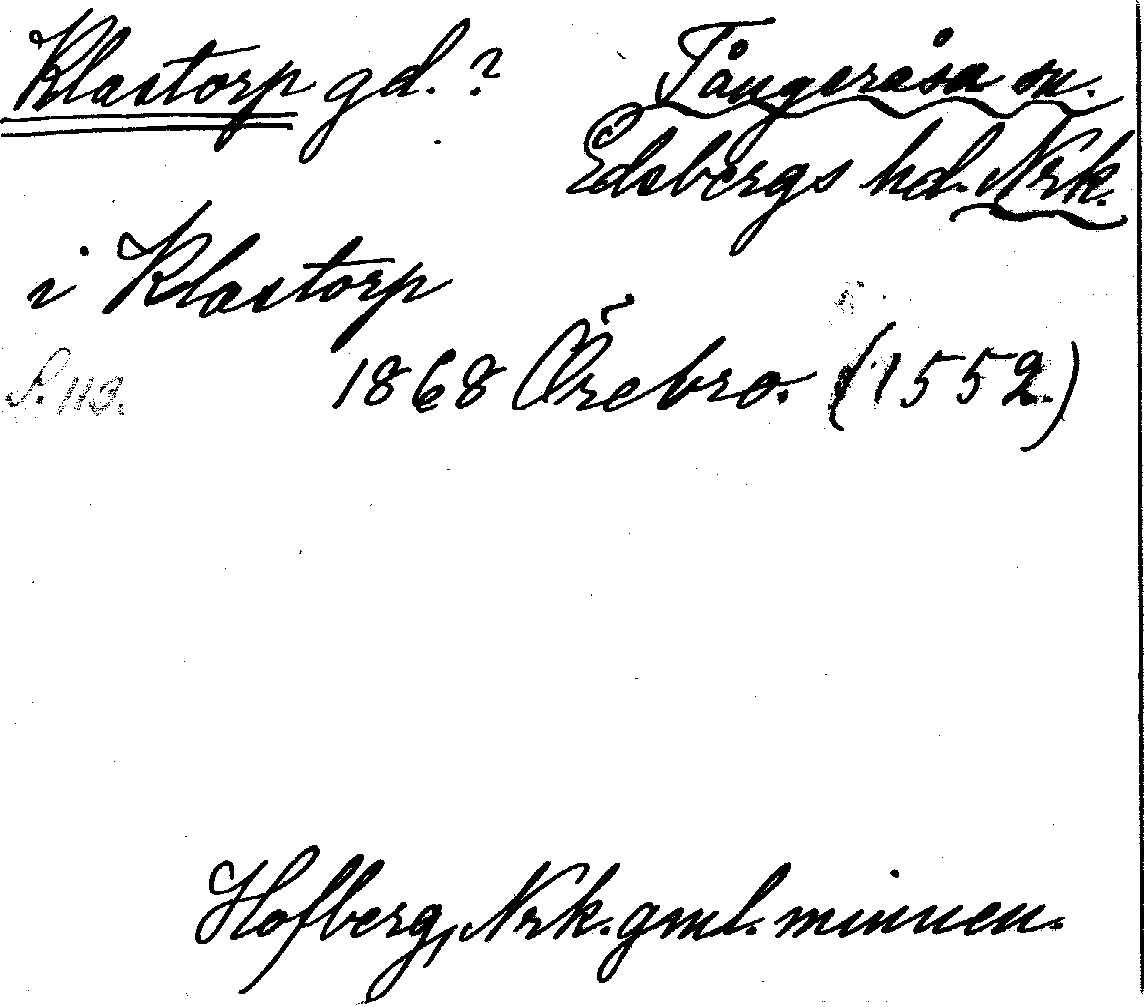 Klastorp gd. ? Tångeråsa sn.
Edsbergs hd. Nrk.
i Klastorp
S. 113. 1868 Örebro. (1552.)
Hofberg, Nrk. gml. minnen.